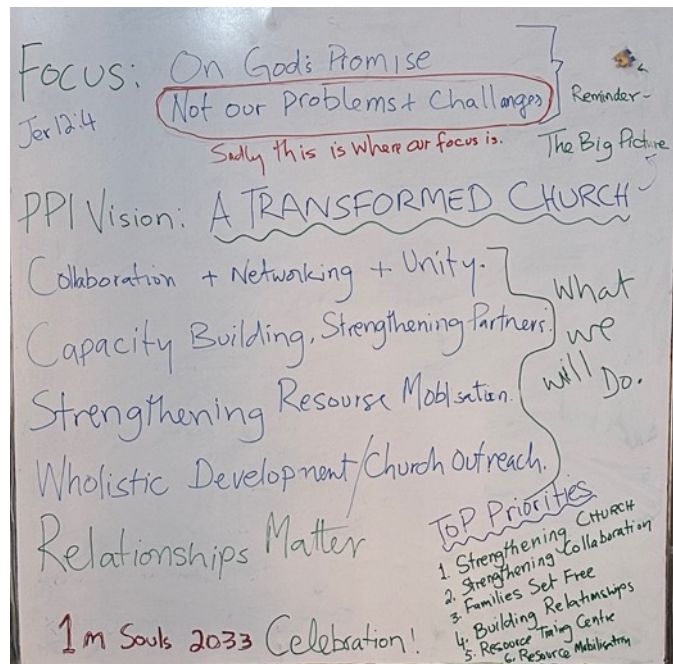 FOCUS: On God's Promise
Jer 12:4
Not our problems + Challanges
Sadly this is where our focus is.
Reminder -
The Big Picture
PPI Vision: A TRANSFORMED CHURCH
Collaboration + Networking + Unity.
Capacity Building, Strengthening Partners.
Strengthening Resourse Moblsation.
Wholistic Development/Church Outreach.
What
we
will Do.
Relationships Matter
ToP Priorities
1. Strengthening CHURCH
2. Strengthening Collaboration
3. Families Set Free
4. Building Relationships
5. Resource Traing Centre
6. Resource Mobilisation
1m Souls 2033 Celebration!